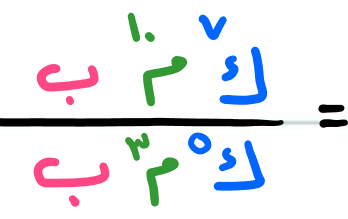 ك٧ م١٠ ب
=
ك٥ م٣ ب